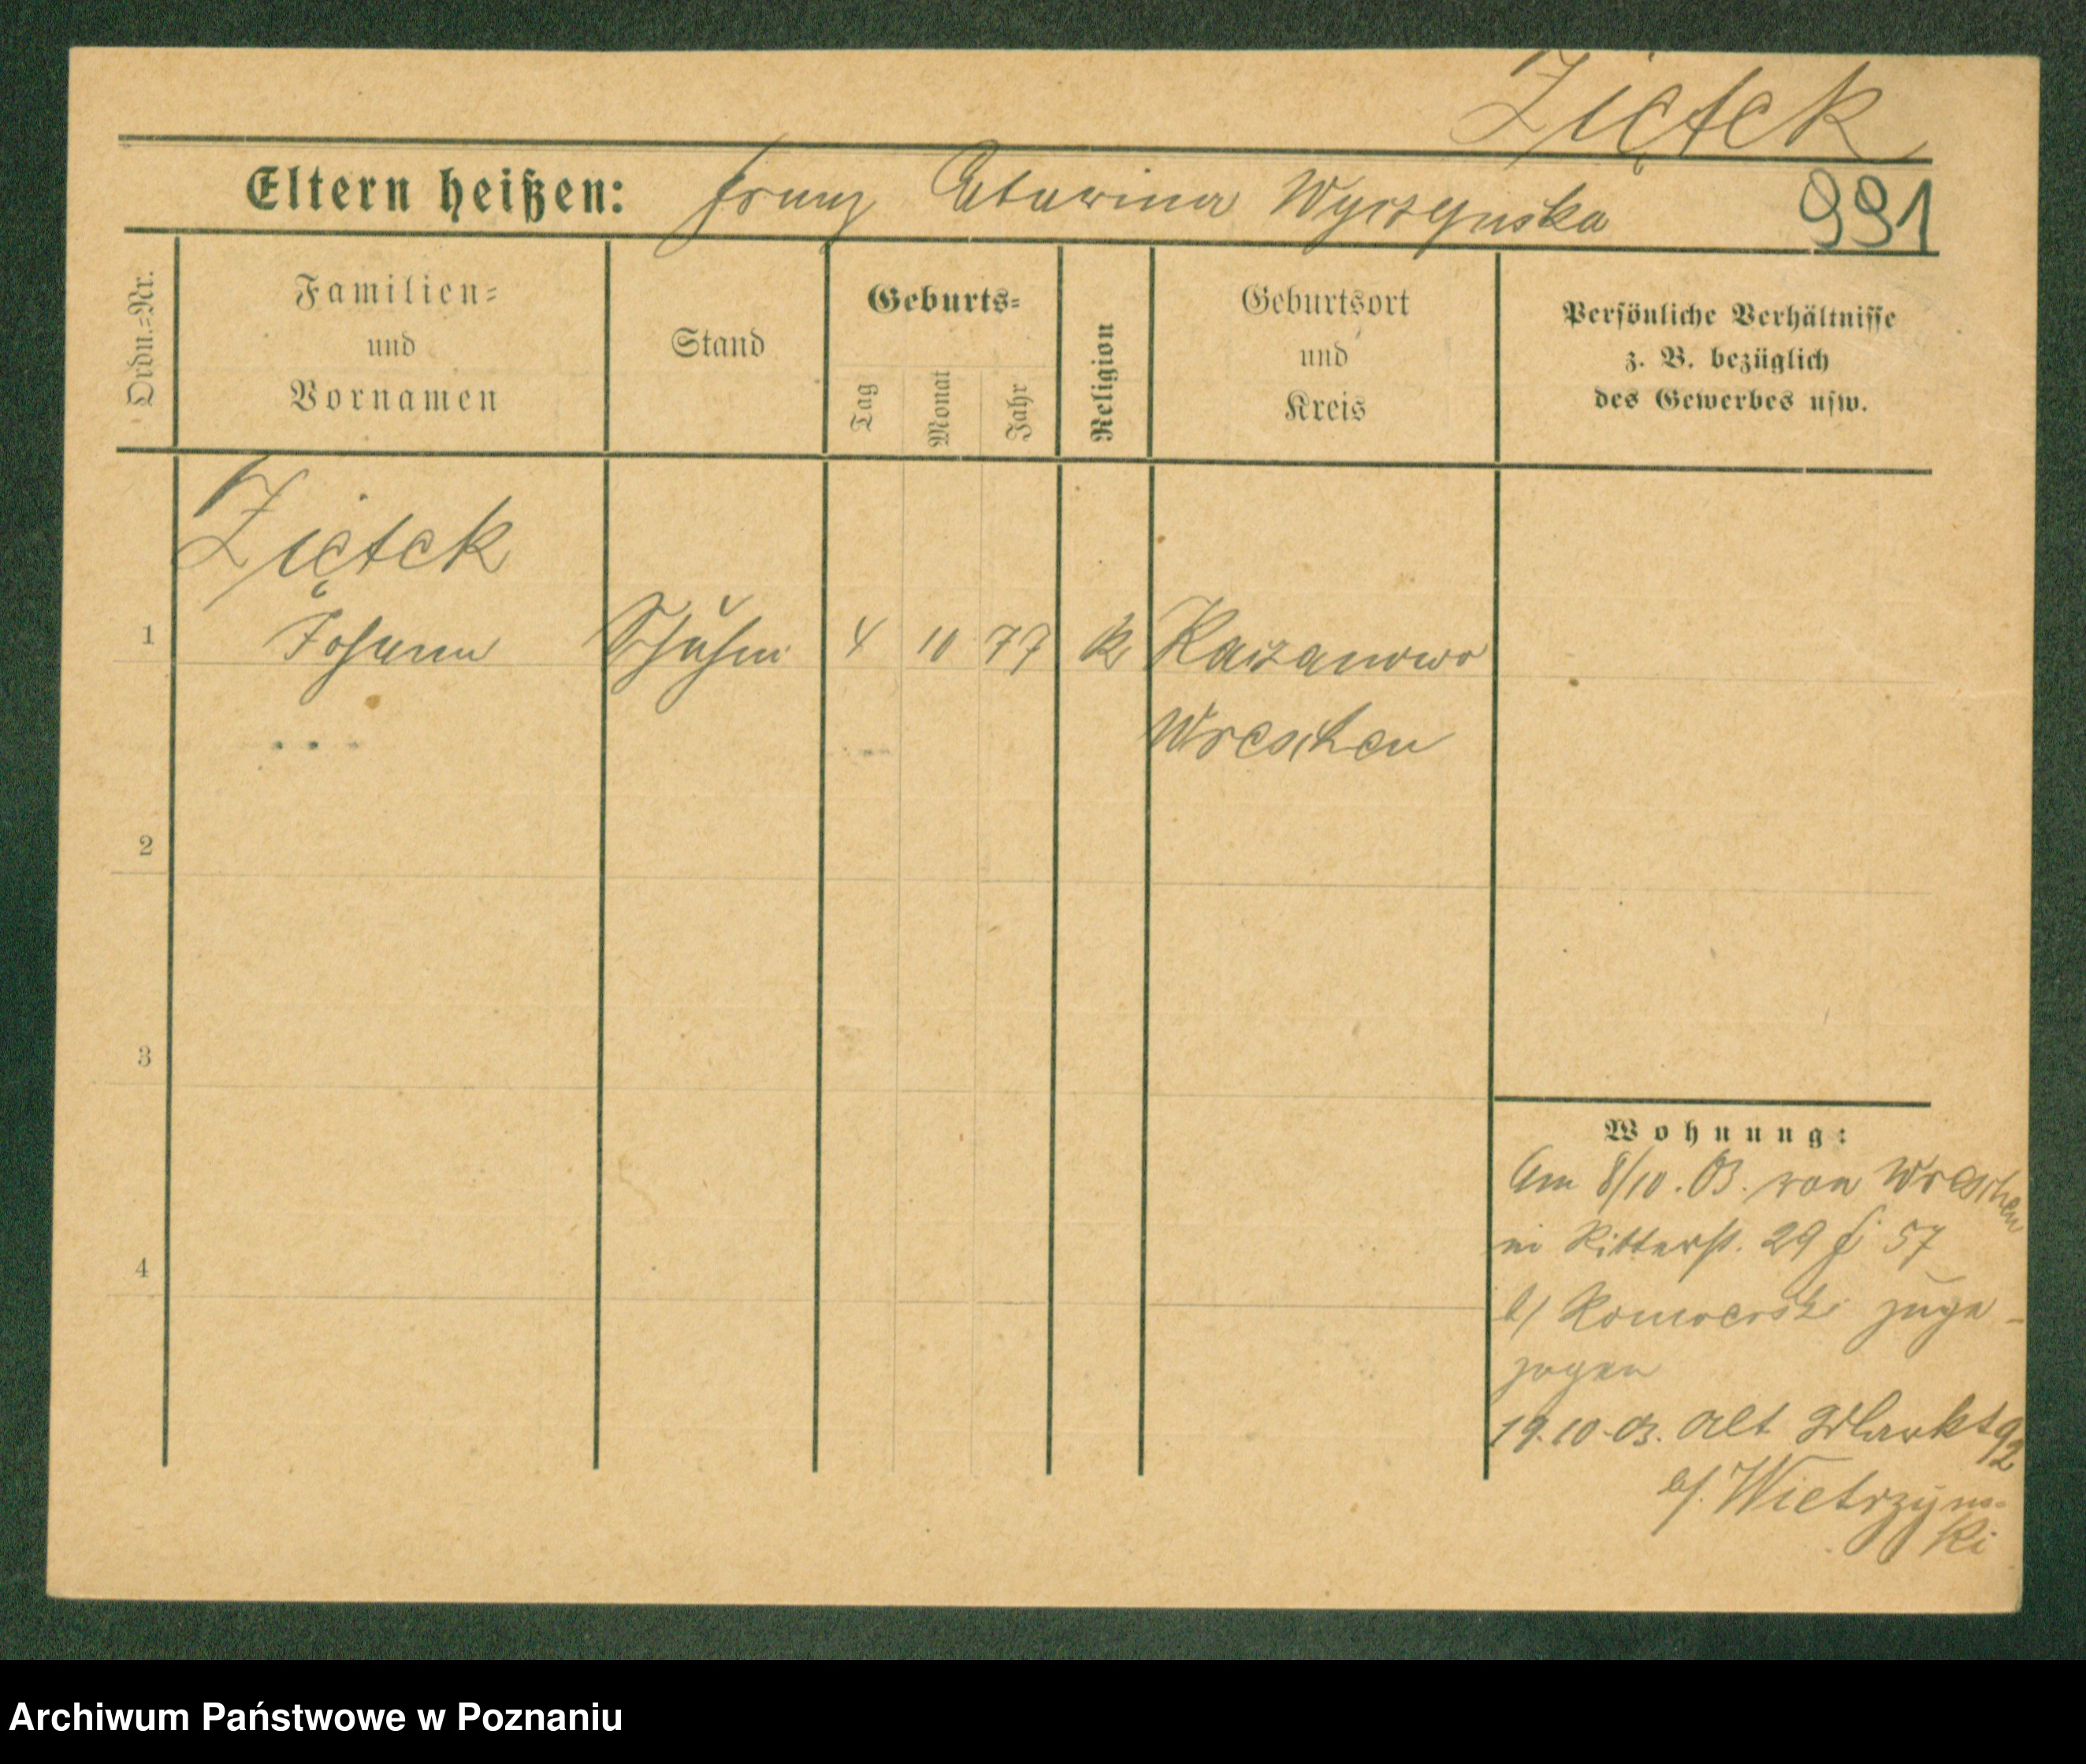 Ziętek
Eltern heißen: Franz Catarina Wyrzynska
991
Ordn.-Nr.
Familien-
und
Vornamen
Stand
Geburts-
Tag
Monat
Jahr
Religion
Geburtsort
und
Kreis
Persönliche Verhältnisse
z. B. bezüglich
des Gewerbes usw.
Ziętek
1 Johann Schuhm 4 10 77 K Kaczanowo
Wreschen
2
3
4
Wohnung:
Am 8/10. 03. von Wreschen
in Ritterst. 29 57
b/ zuge-
zogen
19.10.03. Alt Markt 92
b/. Wietrzyns-
ki
Archiwum Państwowe w Poznaniu